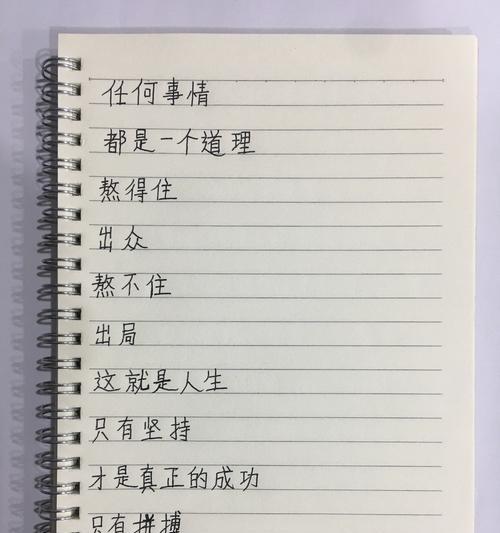 任何事情
都是一个道理
熬得住
出众
熬不住
出局
这就是人生
只有坚持
才是真正的成功
只有拼搏